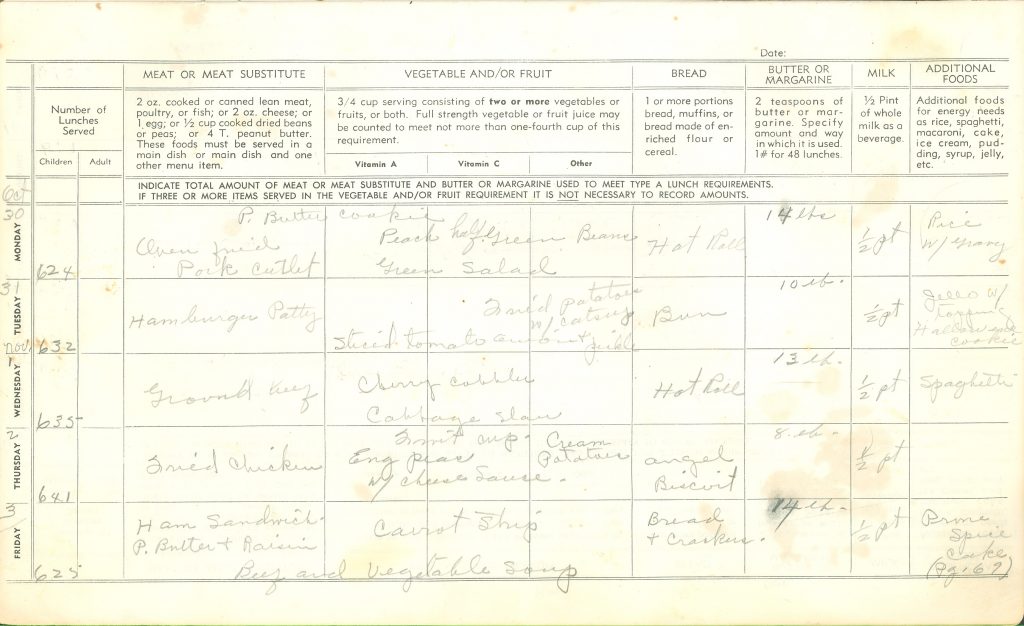 Date:
MEAT OR MEAT SUBSTITUTE
VEGETABLE AND/OR FRUIT
BREAD
BUTTER OR MARGARINE
MILK
ADDITIONAL FOODS
Number of Lunches Served
2 oz. cooked or canned lean meat,
poultry, or fish; or 2 oz. cheese; or
1 egg; or ½ cup cooked dried beans
or peas; or 4 T. peanut butter.
These foods must be served in a
main dish or main dish and one
other menu item.
3/4 cup serving consisting of two or more vegetables or
fruits, or both. Full strength vegetable or fruit juice may
be counted to meet not more than one-fourth cup of this
requirement.
1 or more portions
bread, muffins, or
bread made of en-
riched flour or
cereal.
2 teaspoons of
butter or mar-
garine. Specify
amount and way
in which it is used.
1# for 48 lunches.
½ Pint
of whole
milk as a
beverage.
Additional foods
for energy needs
as rice, spaghetti,
macaroni, cake,
ice cream, pud-
ding, syrup, jelly,
etc.
Children
Adult
Vitamin A
Vitamin C
Other
INDICATE TOTAL AMOUNT OF MEAT OR MEAT SUBSTITUTE AND BUTTER OR MARGARINE USED TO MEET TYPE A LUNCH REQUIREMENTS.
IF THREE OR MORE ITEMS SERVED IN THE VEGETABLE AND/OR FRUIT REQUIREMENT IT IS NOT NECESSARY TO RECORD AMOUNTS.
Oct
30
MONDAY
624
P. Butter cookie
Oven fried
Pork Cutlet
Peach half Green Beans
Green Salad
Hot Roll
14 lbs
½ pt
Rice
w/ Gravy
31
TUESDAY
632
Hamburger Patty
Fried potatoes
w/ catsup
Sliced tomato onion + pickle
Bun
10 lb.
½ pt
Jello w/
topping
Halloween
cookie
Nov.
1
WEDNESDAY
635
Ground Beef
Cherry cobbler
Cabbage slaw
Hot Roll
13 lb.
½ pt
Spaghetti
2
THURSDAY
641
Fried Chicken
Fruit cup
Eng peas
w/ cheese Sauce.
Cream
Potatoes
angel
Biscuit
8 lb.
½ pt
3
FRIDAY
625
Ham Sandwich
P. Butter + Raisin
Carrot Strip
Bread
+ Crackers.
14 lb.
½ pt
Prune
Spice
Cake
(Pg. 69)
Beef and Vegetable Soup